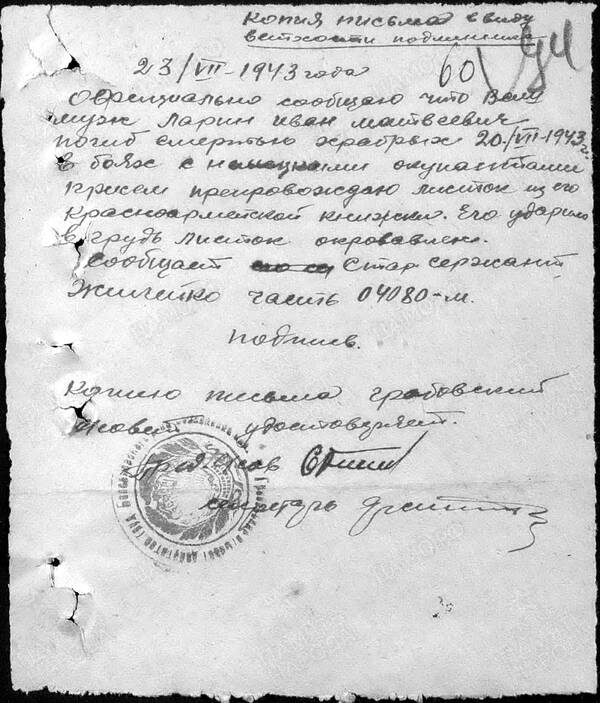 Копия письма ввиду
ветхости подлинника
23/VII-1943 года
60
Официально сообщаю что Ваш
муж Ларин Иван Матвеевич
погиб смертью храбрых 20/VII-1943г.
в боях с немецкими окупантами
При сем препровождаю листок из его
Красноармейской книжки. Его ударило
в грудь листок окровавлен.
Сообщает Стар сержант
часть 04080-м.
подпись.
Копию письма Грабовский
удостоверяет.
секретарь